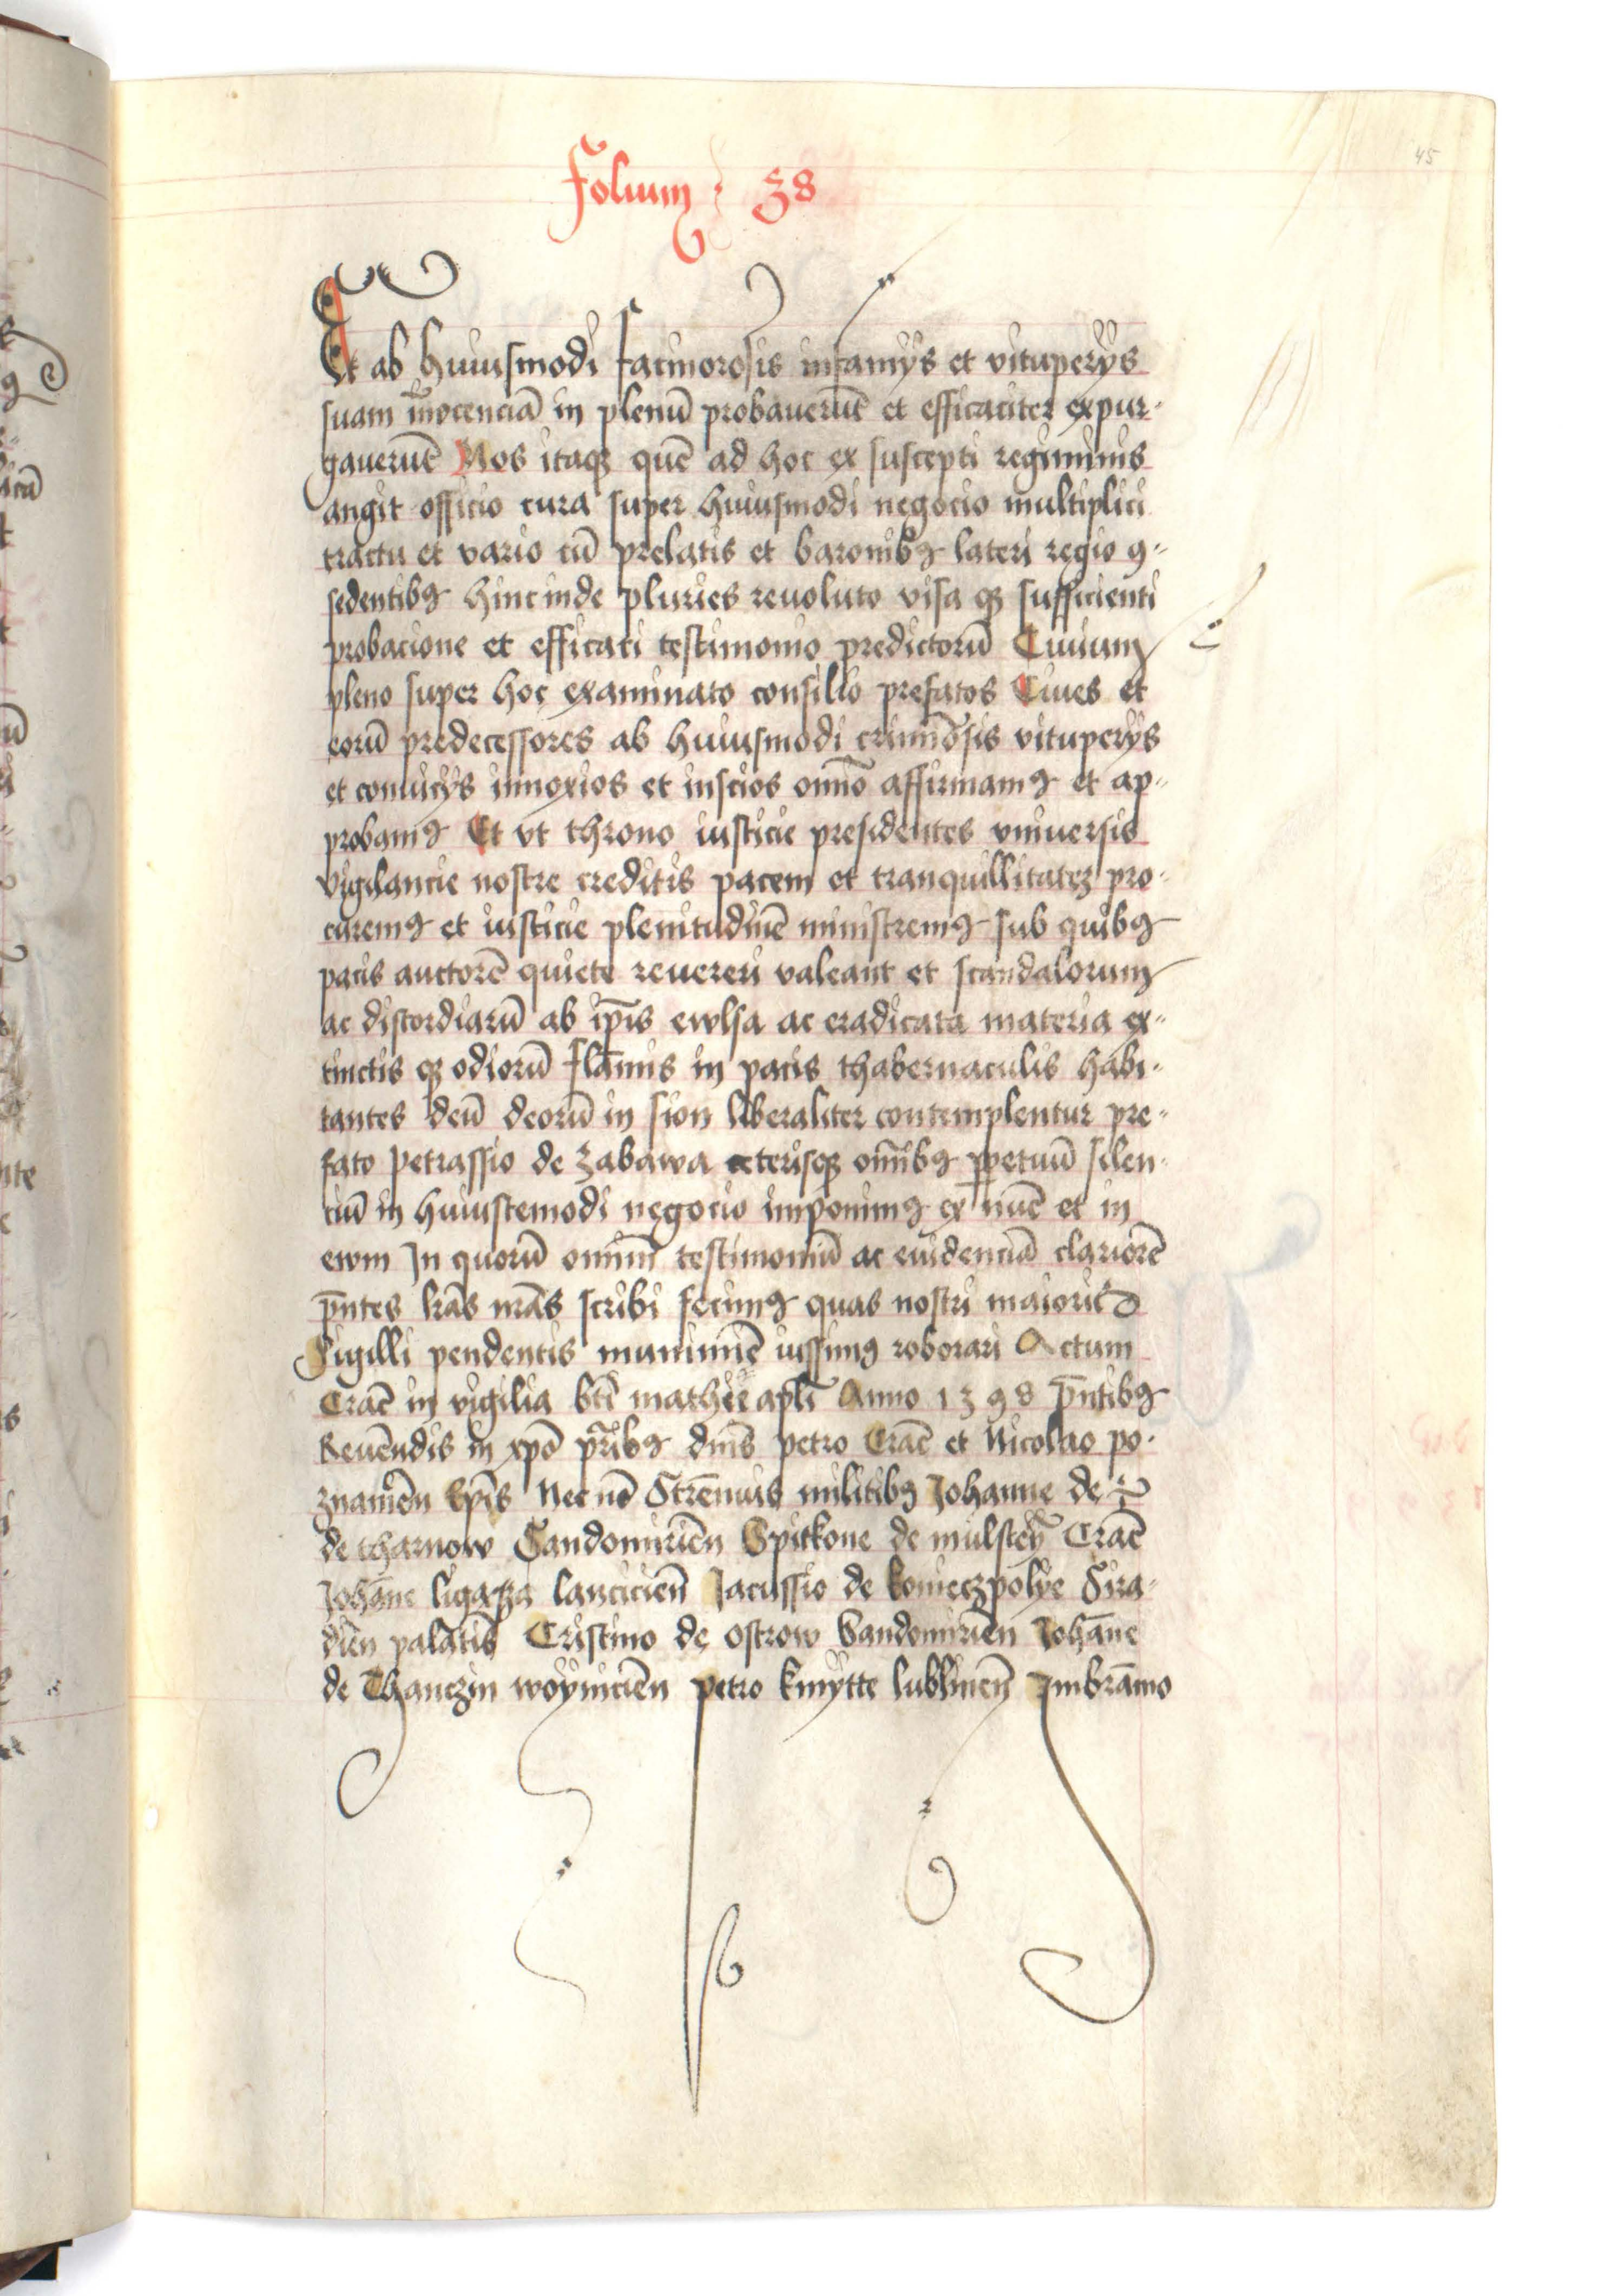 45
Folium : 38
Et ab huiusmodi facinorosis infamijs et vituperijs
suam innocenciā in plenū probaverūt et efficaciter expur-
gaverūt Nos itaqꝫ quē ad hoc ex suscepti regiminis
angit officio cura super huiusmodi negocio multiplici
tractu et vario cū prelatis et baronibꝰ lateri regio ꝯ-
sedentibꝰ hincinde pluries revoluto visa qꝫ sufficienti
probacione et efficaci testimonio predictorū Civium
pleno super hoc examinato consilio prefatos Cives et
eorū predecessores ab huiusmodi criminōsis vituperijs
et convicijs innoxios et inscios omīo affirmamꝰ et ap-
probamꝰ Et vt throno iusticie presidentes vniversis
vigilancie nostre creditis pacem et tranquillitatez pro-
curemꝰ et iusticie plenitudinē ministremꝰ sub quibꝰ
pacis auctorē quiete revereri valeant et scandalorum
ac discordiarū ab ip̄is ewlsa ac eradicata materia ex-
tinctis qꝫ odiorū flāmis in pacis thabernaculis habi-
tantes deū deorū in sion liberaliter contemplentur pre-
fato petrassio de zabawa ceterisqꝫ om̄ibꝰ ꝑpetuū silen-
ciū in huiuscemodi negocio imponimꝰ ex nūc et in
ewm In quorū omniū testimoniū ac evidenciā clariorē
p̄ntes lr̄as nr̄as scribi fecimꝰ quas nostri maioris
Sigilli pendentis munimīe iussimꝰ roborari Actum
Crac̄ in vigilia bt̄i mathei apl̄i Anno 1398 p̄ntibꝰ
Revēndis in xp̄o pr̄ibꝰ dn̄is petro Crac̄ et Nicolao po-
znaniēn Ep̄is Nec nō Strēnuis militibꝰ Johanne de
de tharnow Sandomiriēn Spitkone de mulsteȳ Crac̄
Johāne ligaza lanciciēn Jacussio de konieczpolye Sira-
diēn palatīs Cristino de ostrow Sandomiriēn Johāne
de Thanczin woyniciēn petro kmytte lubliniēn Imbrāmo